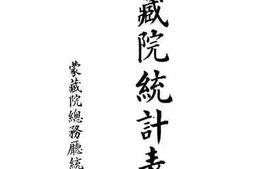 藏院統計表
蒙藏院總務廳統